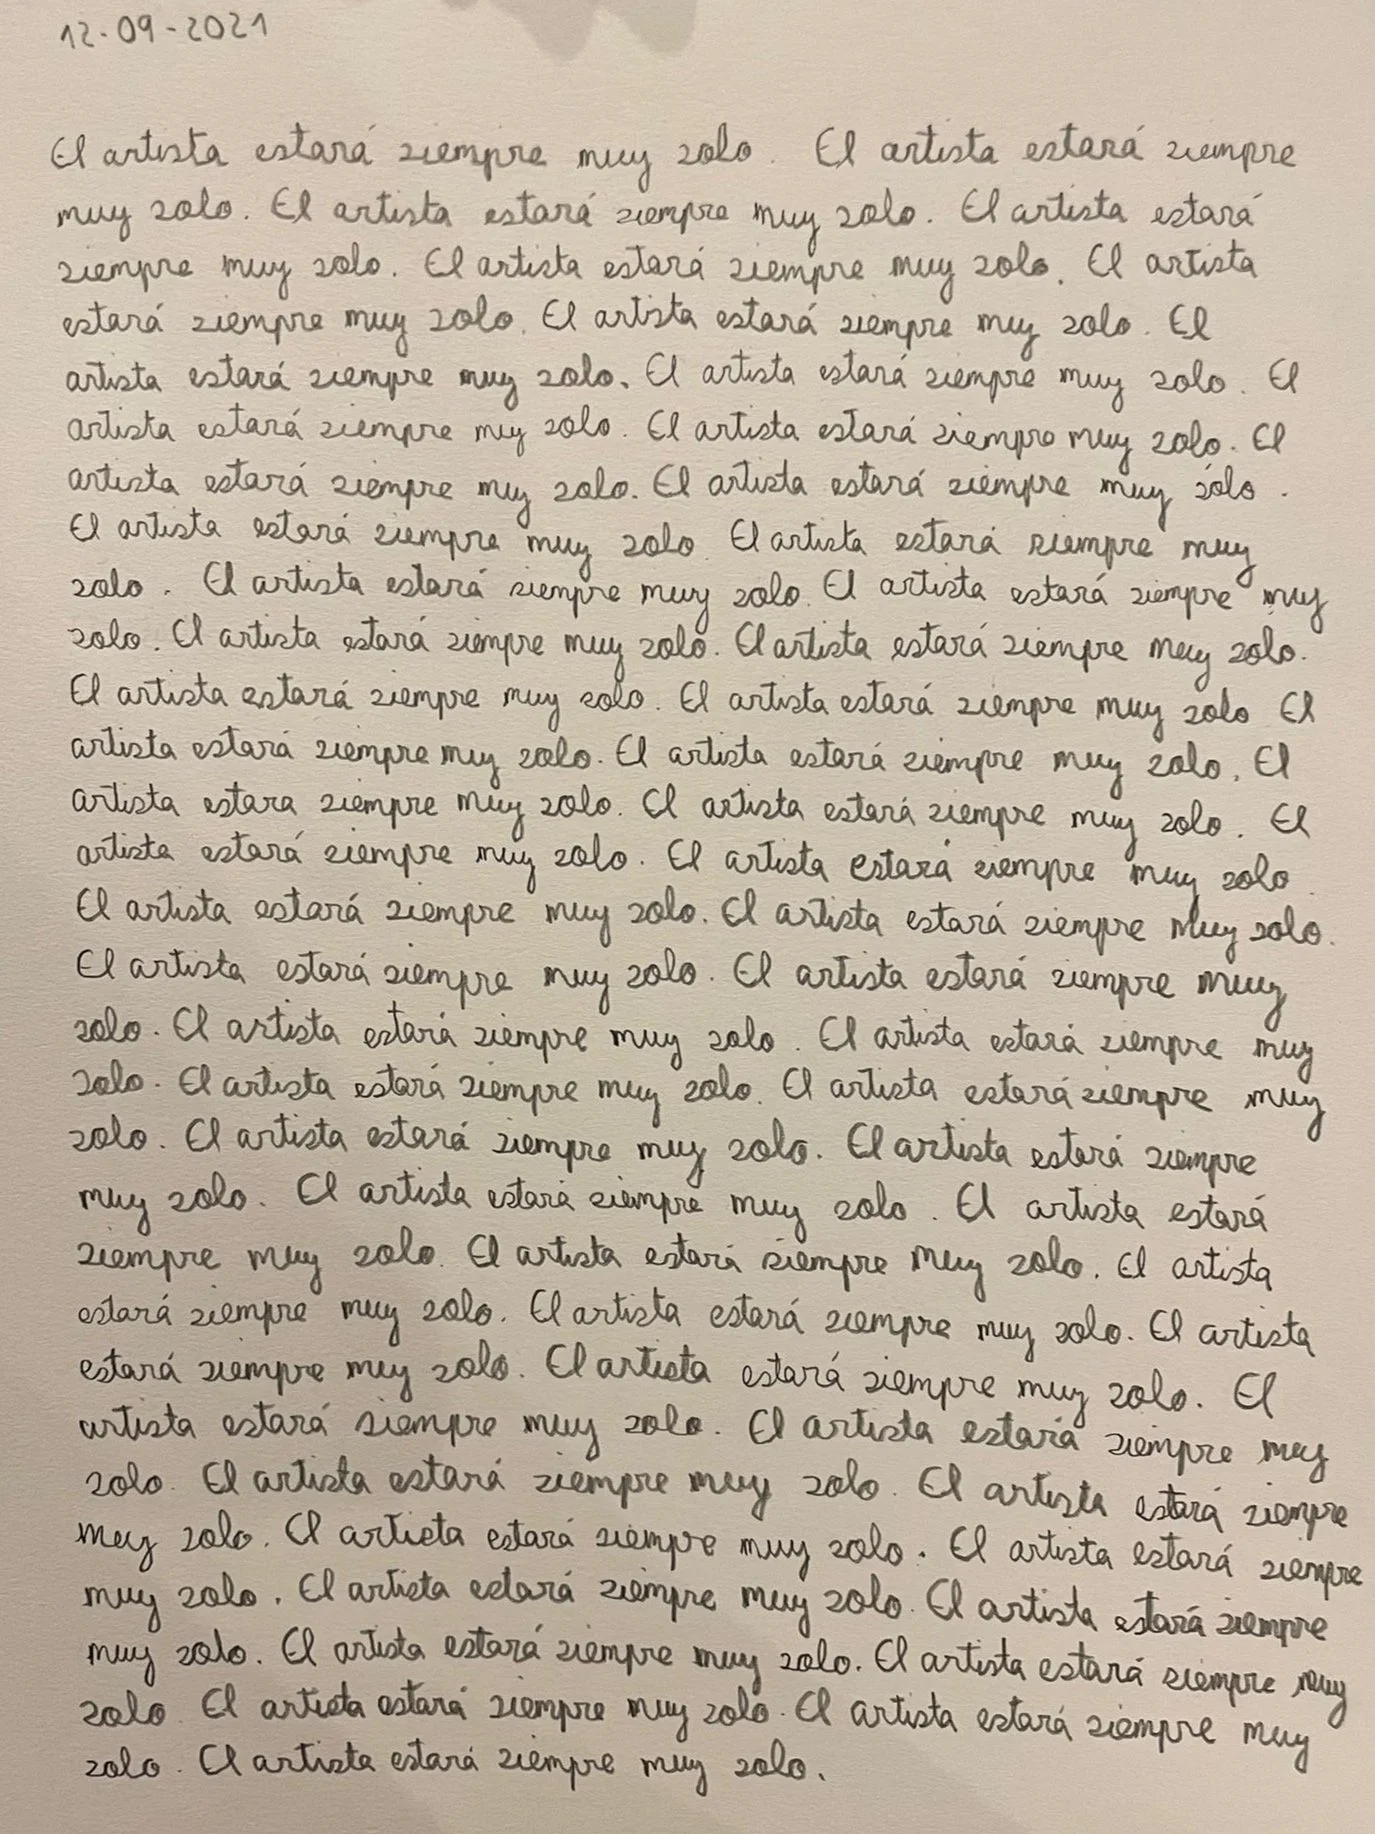 12-09-2021
El artista estará siempre muy solo. El artista estará siempre
muy solo. El artista estará siempre muy solo. El artista estará
siempre muy solo. El artista estará siempre muy solo. El artista
estará siempre muy solo. El artista estará siempre muy solo. El
artista estará siempre muy solo. El artista estará siempre muy solo. El
artista estará siempre muy solo. El artista estará siempre muy solo. El
artista estará siempre muy solo. El artista estará siempre muy sólo.
El artista estará siempre muy solo. El artista estará siempre muy
solo. El artista estará siempre muy solo. El artista estará siempre muy
solo. El artista estará siempre muy solo. El artista estará siempre muy solo.
El artista estará siempre muy solo. El artista estará siempre muy solo El
artista estará siempre muy solo. El artista estará siempre muy solo. El
artista estara siempre muy solo. El artista estará siempre muy solo. El
artista estará siempre muy solo. El artista estará siempre muy solo.
El artista estará siempre muy solo. El artista estará siempre muy solo.
El artista estará siempre muy solo. El artista estará siempre muy
solo. El artista estará siempre muy solo. El artista estará siempre muy
solo. El artista estará siempre muy solo. El artista estará siempre muy
solo. El artista estará siempre muy solo. El artista estará siempre
muy solo. El artista estará siempre muy solo. El artista estará
siempre muy solo. El artista estará siempre muy solo. El artista
estará siempre muy solo. El artista estará siempre muy solo. El artista
estará siempre muy solo. El artista estará siempre muy solo. El
artista estará siempre muy solo. El artista estará siempre muy
solo. El artista estará siempre muy solo. El artista estará siempre
muy solo. El artista estará siempre muy solo. El artista estará siempre
muy solo. El artista estará siempre muy solo. El artista estará siempre
muy solo. El artista estará siempre muy solo. El artista estará siempre muy
solo. El artista estará siempre muy solo. El artista estará siempre muy
solo. El artista estará siempre muy solo.